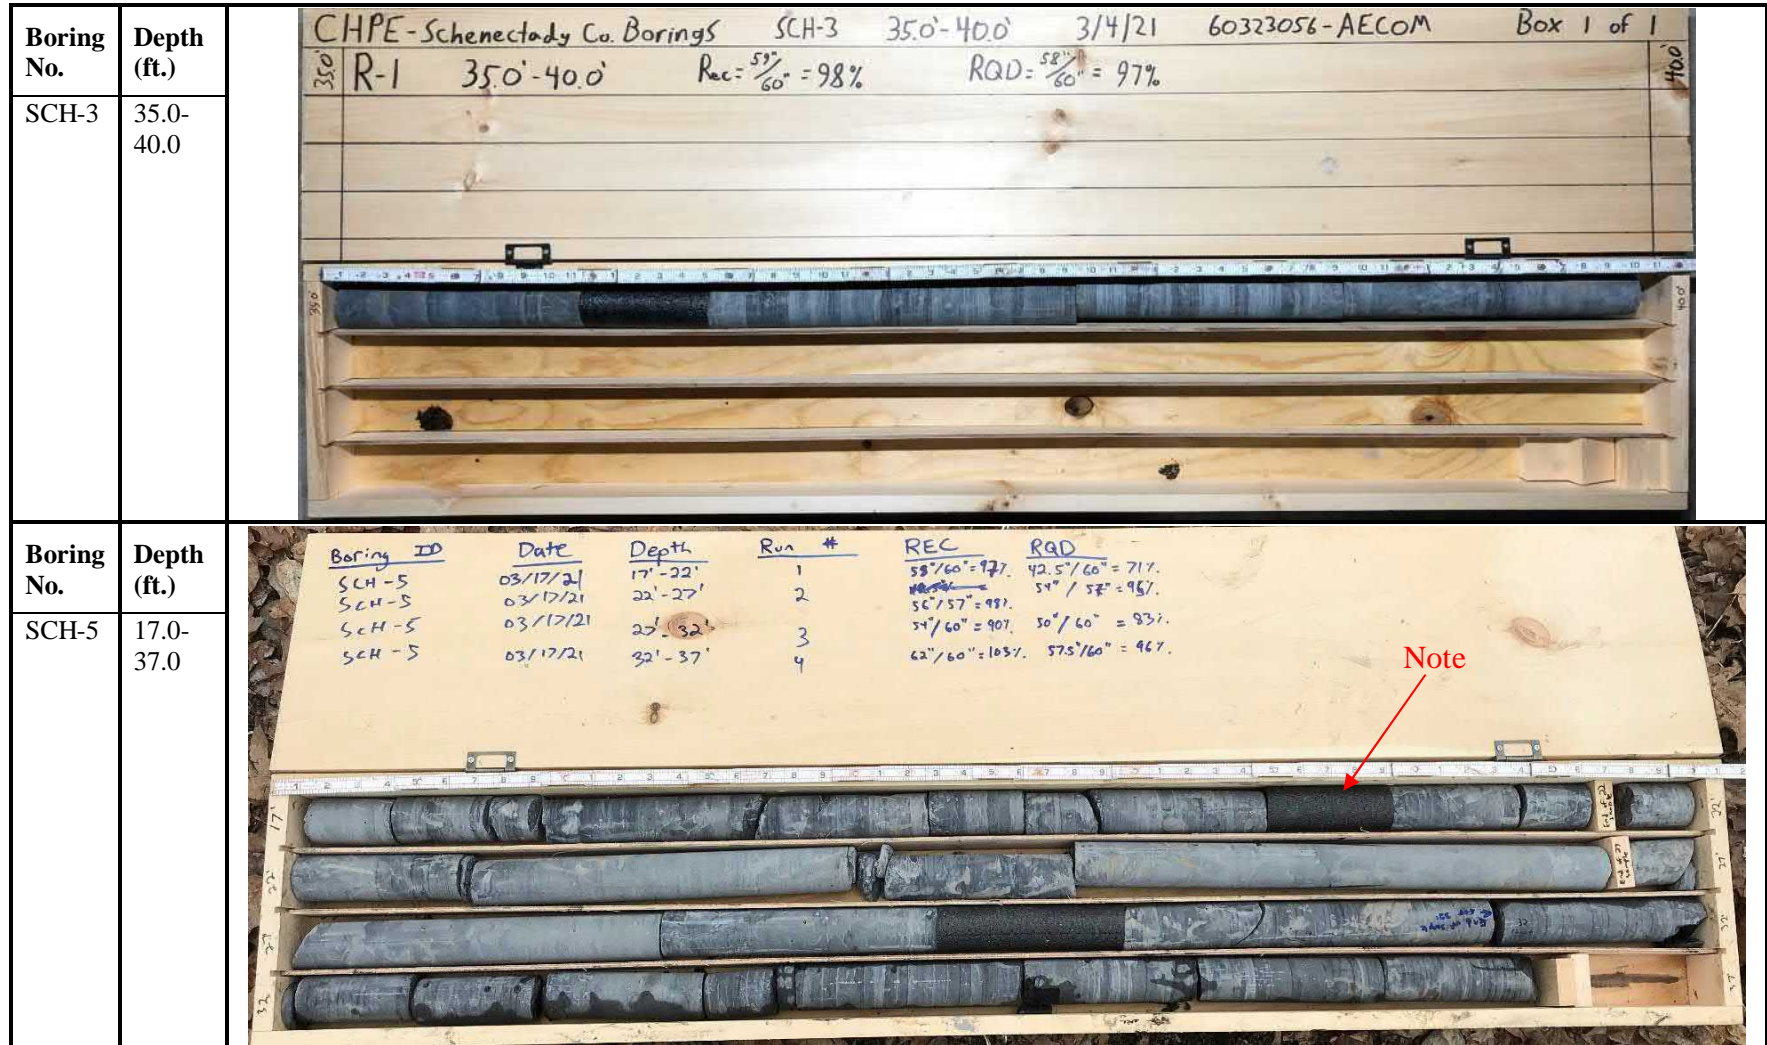 Boring No.
Depth (ft.)
SCH-3
35.0-
40.0
CHPE - Schenectady Co. Borings SCH-3 35.0'-40.0' 3/4/21 60323056-AECOM Box 1 of 1
35.0' R-1 35.0'-40.0' Rec= 59"/60" = 98% RQD= 58"/60" = 97% 40.0'
35.0' 40.0'
Boring No.
Depth (ft.)
SCH-5
17.0-
37.0
Boring ID Date Depth Run # REC RQD
SCH-5 03/17/21 17'-22' 1 58"/60"=97% 42.5"/60" = 71%
SCH-5 03/17/21 22'-27' 2 56"/57"=98% 54"/57"=95%
SCH-5 03/17/21 27'-32' 3 54"/60"=90% 50"/60" = 83%
SCH-5 03/17/21 32'-37' 4 62"/60"=103% 57.5"/60" = 96%
Note
17' End of 22 22'
22' End of 27 27'
27' End of 32' 32 32'
32 37'